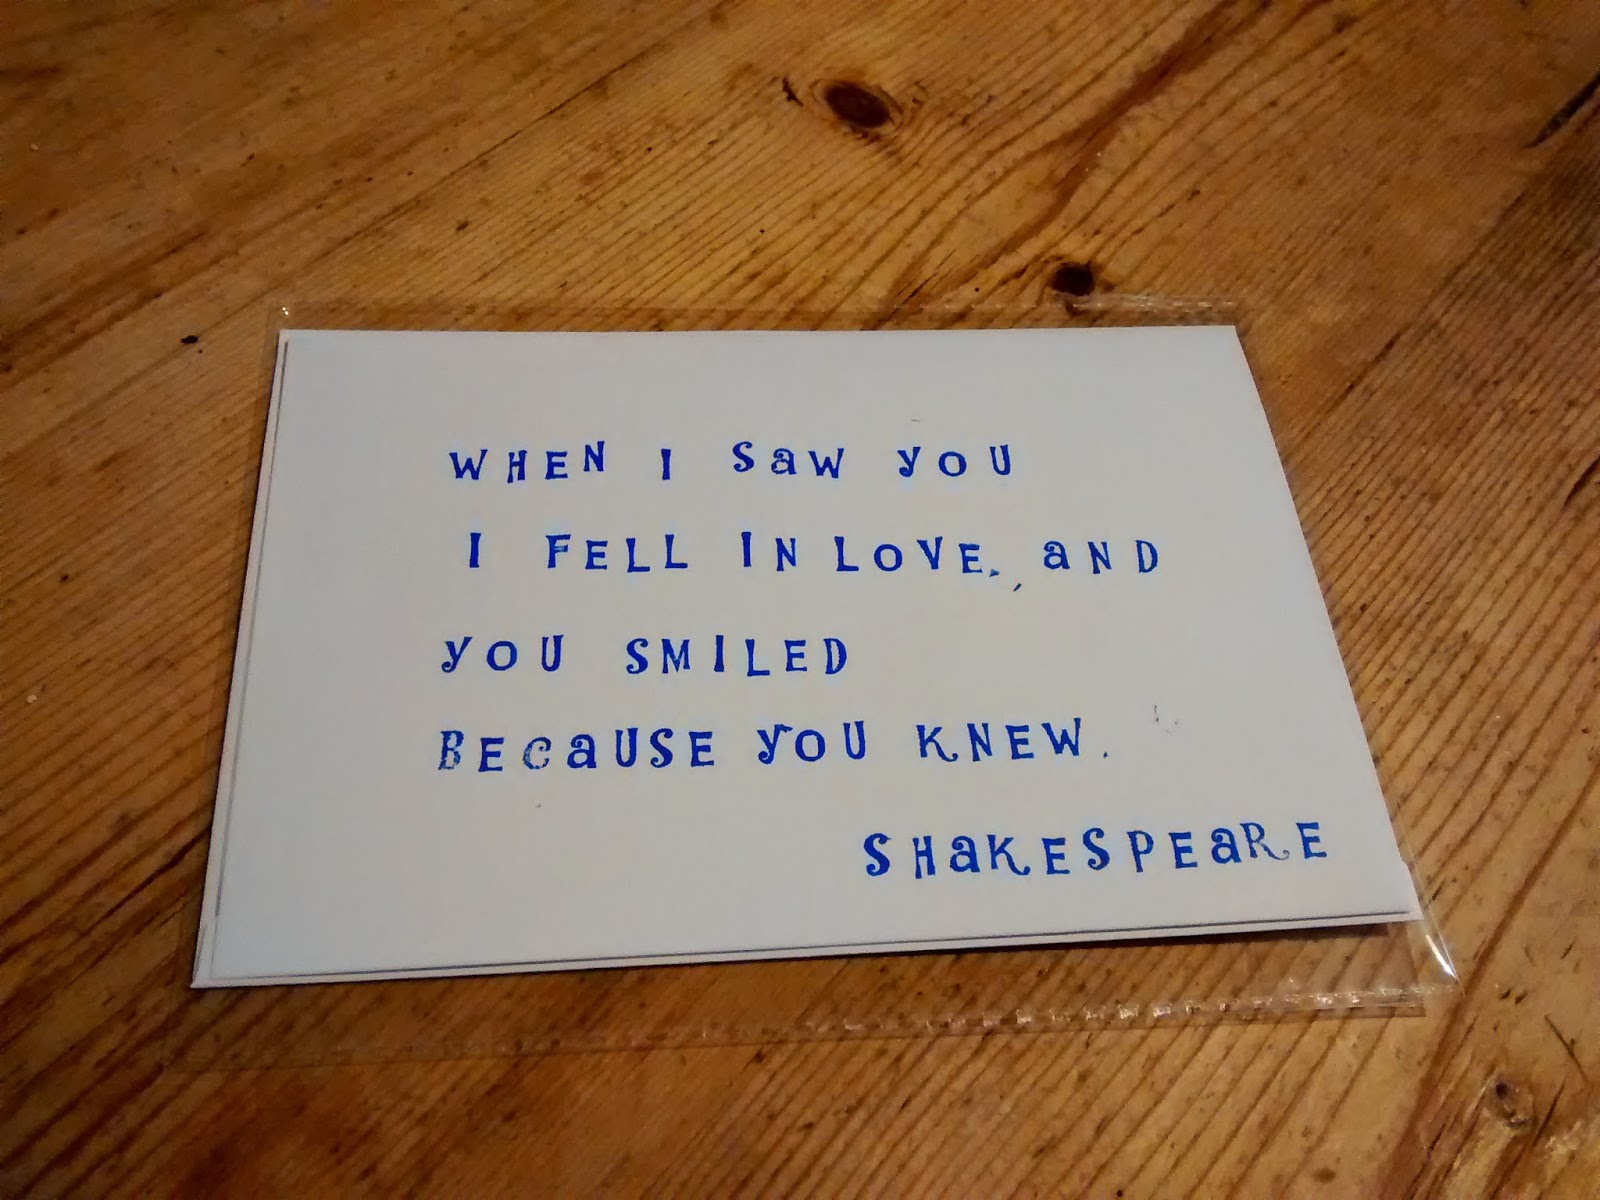 WHEN I SaW YOU
I FELL IN LOVE., aND
YOU SMILED
BECaUSE YOU KNEW.
SHaKESPEaRE